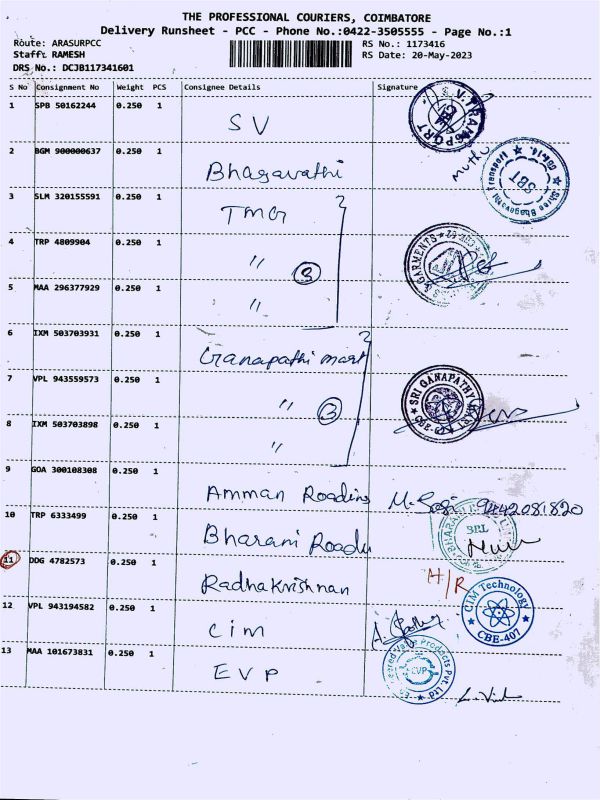 THE PROFESSIONAL COURIERS, COIMBATORE
Delivery Runsheet - PCC - Phone No.:0422-3505555 - Page No.:1
Route: ARASURPCC
RS No.: 1173416
Staff: RAMESH
RS Date: 20-May-2023
DRS No.: DCJB117341601
S No Consignment No Weight PCS Consignee Details Signature
1 SPB 50162244 0.250 1 SV
V.TRANSPORT
2 BGM 900000637 0.250 1 Bhagavathi
Muthu
Shree Bhagavathi Transport
SBT
3 SLM 320155591 0.250 1 TMG
4 TRP 4809904 0.250 1 " 3
GARMENTS
5 MAA 296377929 0.250 1 "
6 IXM 503703931 0.250 1 Ganapathi mart
7 VPL 943559573 0.250 1 " 3
SRI GANAPATHY MART
8 IXM 503703898 0.250 1 "
9 GOA 300108308 0.250 1 Amman Roading 9442081820
10 TRP 6333499 0.250 1 Bharani Roadu
BRL
11 DDG 4782573 0.250 1 Radhakrishnan H/R
12 VPL 943194582 0.250 1 Cim
CIM Technology
CBE-407
13 MAA 101673831 0.250 1 EVP
Products Pvt. Ltd